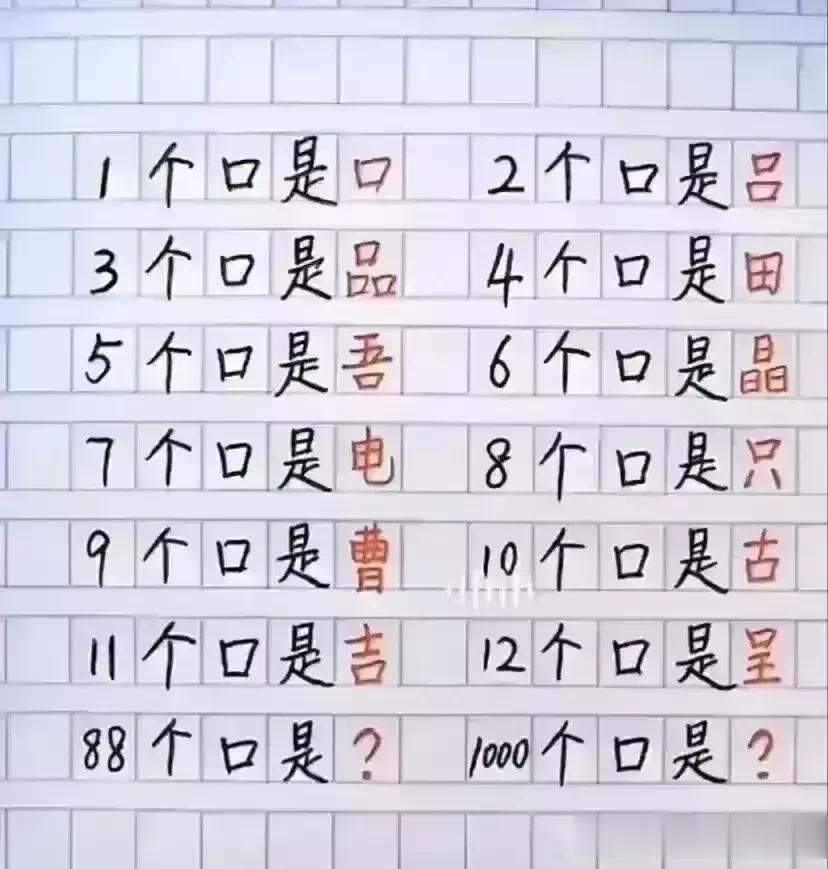 1个口是口 2个口是吕
3个口是品 4个口是田
5个口是吾 6个口是晶
7个口是电 8个口是只
9个口是曹 10个口是古
11个口是吉 12个口是呈
88个口是? 1000个口是?